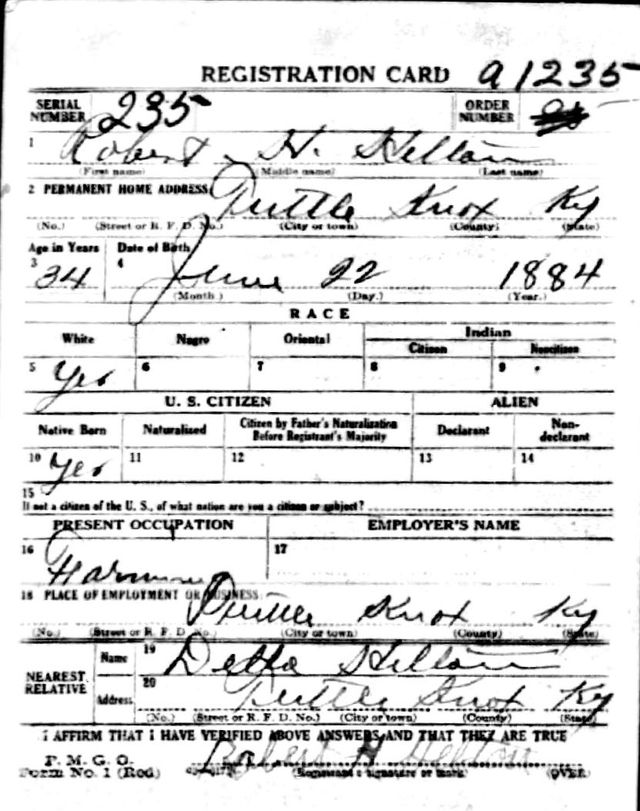 REGISTRATION CARD A1235
SERIAL NUMBER 235 ORDER NUMBER
1 Robert H. Helton
(First name) (Middle name) (Last name)
2 PERMANENT HOME ADDRESS Tuttle Knox Ky
(No.) (Street or R. F. D. No.) (City or town) (County) (State)
Age in Years Date of Birth
3 34 4 June 22 1884
(Month) (Day.) (Year.)
RACE
White Negro Oriental Indian
Citizen Noncitizen
5 Yes 6 7 8 9
U. S. CITIZEN ALIEN
Native Born Naturalized Citizen by Father's Naturalization Before Registrant's Majority Declarant Non-declarant
10 Yes 11 12 13 14
15
If not a citizen of the U. S., of what nation are you a citizen or subject?
PRESENT OCCUPATION EMPLOYER'S NAME
16 Farming 17
18 PLACE OF EMPLOYMENT OR BUSINESS: Tuttle Knox Ky
(No.) (Street or R. F. D. No.) (City or town) (County) (State)
NEAREST RELATIVE Name 19 Della Helton
Address 20 Tuttle Knox Ky
(No.) (Street or R. F. D. No.) (City or town) (County) (State)
I AFFIRM THAT I HAVE VERIFIED ABOVE ANSWERS AND THAT THEY ARE TRUE
P. M. G. O.
Form No. 1 (Red) Robert H Helton
(Registrant's signature or mark) (OVER)